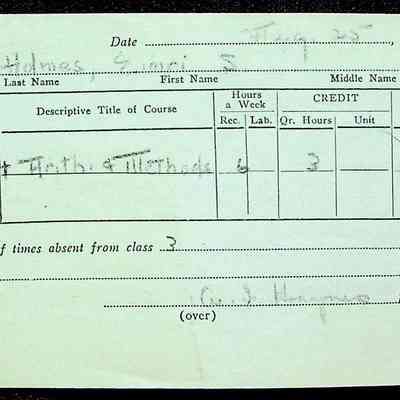 Date Aug. 25,
Holmes, S
Last Name First Name Middle Name
Hours a Week CREDIT
Descriptive Title of Course Rec. Lab. Qr. Hours Unit
Arith. & Methods 6 3
f times absent from class 3
(over)